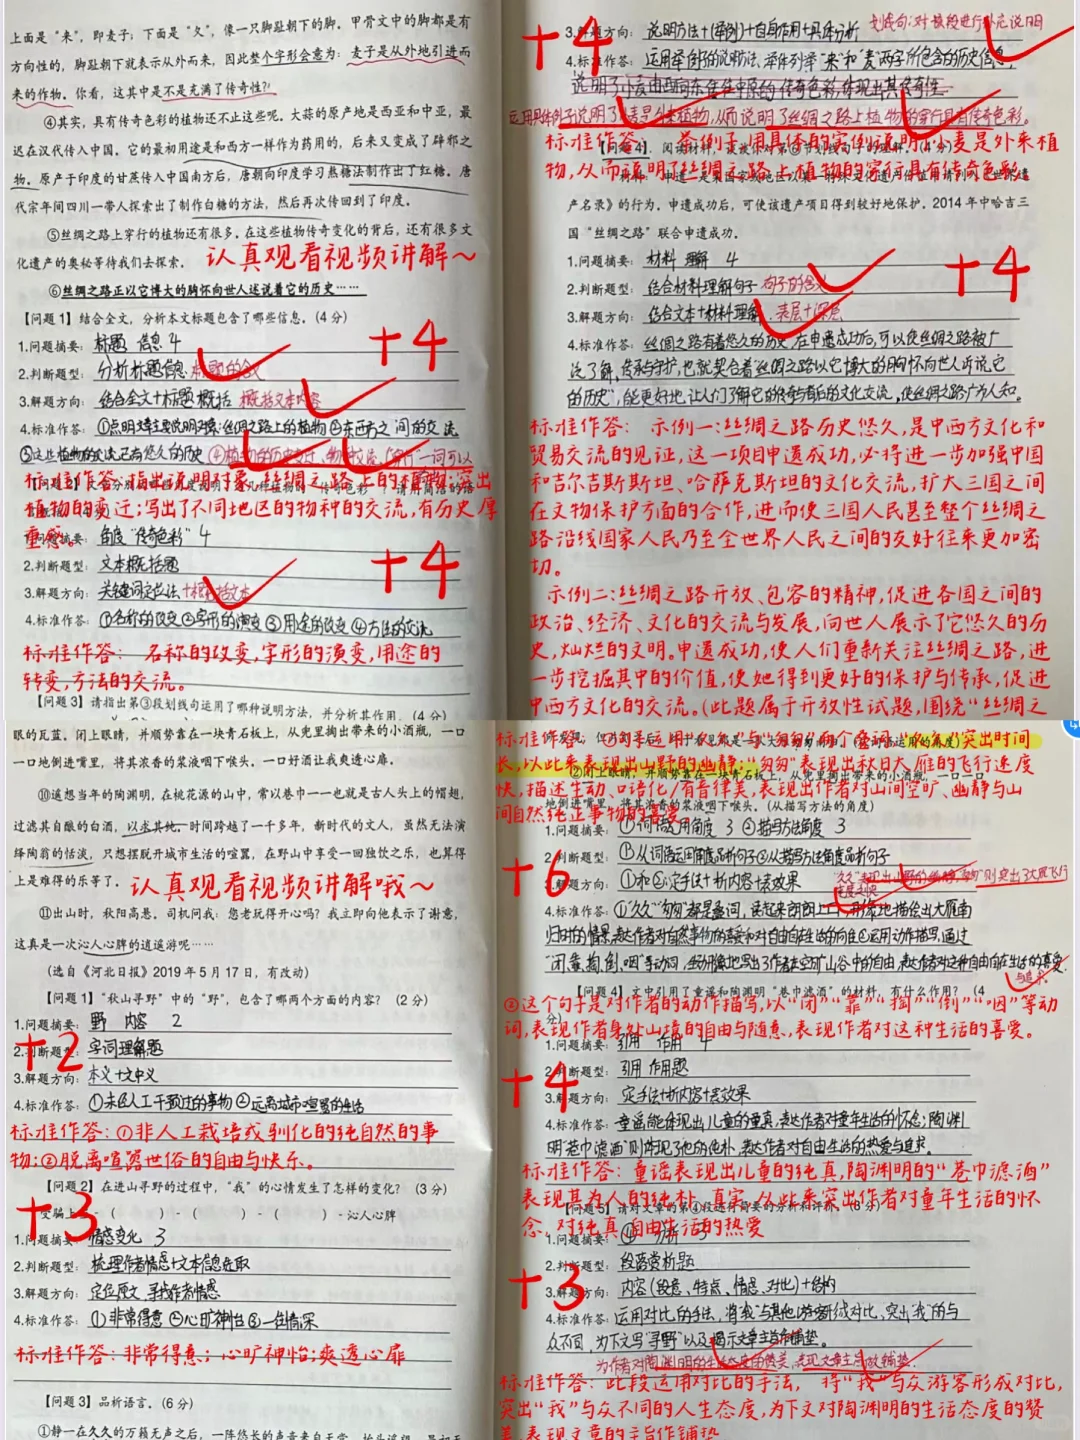 上面是“来”，即麦子；下面是“夂”，像一只脚趾朝下的脚。甲骨文中的脚都是有
方向性的，脚趾朝下就表示从外而来，因此整个字形会意为：麦子是从外地引进而
来的作物。你看，这其中是不是充满了传奇性?!
④其实，具有传奇色彩的植物还不止这些呢。大蒜的原产地是西亚和中亚，最
迟在汉代传入中国。它的最初用途是和西方一样作为药用的，后来又变成了辟邪之
物。原产于印度的甘蔗传入中国南方后，唐朝向印度学习熬糖法制作出了红糖。唐
代宗年间四川一带人探索出了制作白糖的方法，然后再次传回到了印度。
⑤丝绸之路上穿行的植物还有很多。在这些植物传奇变化的背后，还有很多文
化遗产的奥秘等待我们去探索。
认真观看视频讲解～
⑥丝绸之路正以它博大的胸怀向世人述说着它的历史……
【问题1】结合全文，分析本文标题包含了哪些信息。(4分)
1.问题摘要：标题 信息 4
+4
2.判断题型：分析标题信息 标题的含义
3.解题方向：结合全文+标题概括 概括文本内容
4.标准作答：①点明文章主要说明对象：丝绸之路上的植物②东西方之间的交流
③这些植物的交流已有悠久的历史
标准作答：指出说明对象——丝绸之路上的植物；突出
植物的变迁；写出了不同地区的物种的交流，有历史厚
重感。
问题摘要：角度“传奇色彩” 4
+4
2.判断题型：文本概括题
3.解题方向：关键词定位法+概括文本
4.标准作答：①名称的改变②字形的演变③用途的改变④方法的交流
标准作答：名称的改变，字形的演变，用途的
转变，方法的交流。
【问题3】请指出第③段划线句运用了哪种说明方法，并分析其作用。(4分)
+4
3.解题方向：说明方法+(举例)+自身作用+具体分析
4.标准作答：运用举例子的说明方法，举例列举“来”和“麦”两字所包含的历史信息，
说明了小麦由西向东传佳中原的传奇色彩，体现出其传奇性
运用具体例子说明了小麦是外来植物，从而说明了丝绸之路上植物的穿行具有传奇色彩。
标准作答：举例子，用具体的实例说明小麦是外来植
物，从而说明了丝绸之路上植物的穿行具有传奇色彩。
产名录》的行为。申遗成功后，可使该遗产项目得到较好地保护。2014年中哈吉三
国“丝绸之路”联合申遗成功。
1.问题摘要：材料 理解 4
+4
2.判断题型：结合材料理解句子 句子的含义
3.解题方向：结合文本+材料理解 表层+深层
4.标准作答：丝绸之路有着悠久的历史，在申遗成功后，可以使丝绸之路被广
泛了解，传承与守护，也就契合着“丝绸之路以它博大的胸怀向世人诉说它
的历史”，能更好地让人们了解它的传奇与背后的文化交流，使丝绸之路广为人知。
标准作答：示例一：丝绸之路历史悠久，是中西方文化和
贸易交流的见证，这一项申遗成功，必将进一步加强中国
和吉尔吉斯斯坦、哈萨克斯坦的文化交流，扩大三国之间
在文物保护方面的合作，进而使三国人民甚至整个丝绸之
路沿线国家人民乃至全世界人民之间的友好往来更加密
切。
示例二：丝绸之路开放、包容的精神，促进各国之间的
政治、经济、文化的交流与发展，向世人展示了它悠久的历
史，灿烂的文明。申遗成功，使人们重新关注丝绸之路，进
一步挖掘其中的价值，使她得到更好的保护与传承，促进
中西方文化的交流。(此题属于开放性试题，围绕“丝绸之
眼的瓦蓝。闭上眼睛，并顺势靠在一块青石板上，从兜里掏出带来的小酒瓶，一口
一口地倒进嘴里，将其浓香的浆液咽下喉头。一口好酒让我爽透心扉。
⑩遥想当年的陶渊明，在桃花源的山中，常以巷中一一也就是古人头上的帽翅，
过滤其自酿的白酒，以求其纯。时间跨越了一千多年，新时代的文人，虽然无法演
绎陶翁的恬淡，只想摆脱开城市生活的喧嚣，在野山中享受一回独饮之乐，也算得
上是难得的乐等了。
认真观看视频讲解哦～
⑪出山时，秋阳高悬，司机问我：您老玩得开心吗？我立即向他表示了谢意，
这真是一次沁人心脾的逍遥游呢……
(选自《河北日报》2019年5月17日，有改动)
【问题1】“秋山寻野”中的“野”，包含了哪两个方面的内容？(2分)
1.问题摘要：野 内容 2
+2
2.判断题型：字词理解题
3.解题方向：本义+文中义
4.标准作答：①未经人工干预过的事物②远离城市喧嚣的生活
标准作答：①非人工栽培或驯化的纯自然的事
物；②脱离喧嚣世俗的自由与快乐。
【问题2】在进山寻野的过程中，“我”的心情发生了怎样的变化？(3分)
受骗上 - ( ) - ( ) - ( ) - 沁人心脾
+3
1.问题摘要：情感变化 3
2.判断题型：梳理作者情感+文本信息选取
3.解题方向：定位原文，寻找作者情感
4.标准作答：①非常得意②心旷神怡③一往情深
标准作答：非常得意；心旷神怡；爽透心扉
【问题3】品析语言。(6分)
①静一在久久的万籁无声之后，一阵悠长的声音来自天堂
长，以此来表现出山野的幽静；“匆匆”表现出秋日大雁的飞行速度
快，描述生动、口语化/有音律美，表现出作者对山间空旷、幽静与山
间自然纯正事物的喜爱。
地倒进嘴里，将其浓香的浆液咽下喉头。(从描写方法的角度)
1.问题摘要：①词语运用角度 3 ②描写方法角度 3
+6
2.判断题型：①从词语运用角度品析句子②从描写方法角度品析句子
3.解题方向：①和②：定手法+析内容+表效果
4.标准作答：①“久久”“匆匆”都是叠词，读起来朗朗上口，形象地描绘出大雁南
归时的情景，表达作者对自然事物的喜爱和对自由自在生活的向往②运用动作描写，通过
“闭、靠、掏、倒、咽”等动词，生动形象地写出了作者在空旷山谷中的自由，表达作者对这种自由自在生活的喜爱
与追求。
【问题4】文中引用了童谣和陶渊明“巷中滤酒”的材料，有什么作用？(4
②这个句子是对作者的动作描写，以“闭”“靠”“掏”“倒”“咽”等动
词，表现作者身处山境的自由与随意，表现作者对这种生活的喜爱。
1.问题摘要：引用 作用 4
+4
2.判断题型：引用作用题
3.解题方向：定手法+析内容+表效果
4.标准作答：童谣能体现出儿童的童真，表达作者对童年生活的怀念；陶渊
明“巷中滤酒”则体现了他的纯朴，表达作者对自由生活的热爱与追求。
标准作答：童谣表现出儿童的纯真，陶渊明的“巷中滤酒”
表现其为人的纯朴、真实，以此来突出作者对童年生活的怀
念、对纯真、自由生活的热爱
【问题5】请对文章的第④段进行简要的分析和评价。
1.问题摘要：④ 分析 3
+3
2.判断题型：段落赏析题
3.解题方向：内容(段意、特点、情感、对比)+结构
4.标准作答：运用对比的手法，将“我”与其他游客形成对比，突出“我”的与
众不同，为下文写“寻野”以及揭示文章主旨作铺垫。
标准作答：此段运用对比的手法，将“我”与众游客形成对比，
突出“我”与众不同的人生态度，为下文对陶渊明的生活态度的赞
美，表现文章的主旨作铺垫